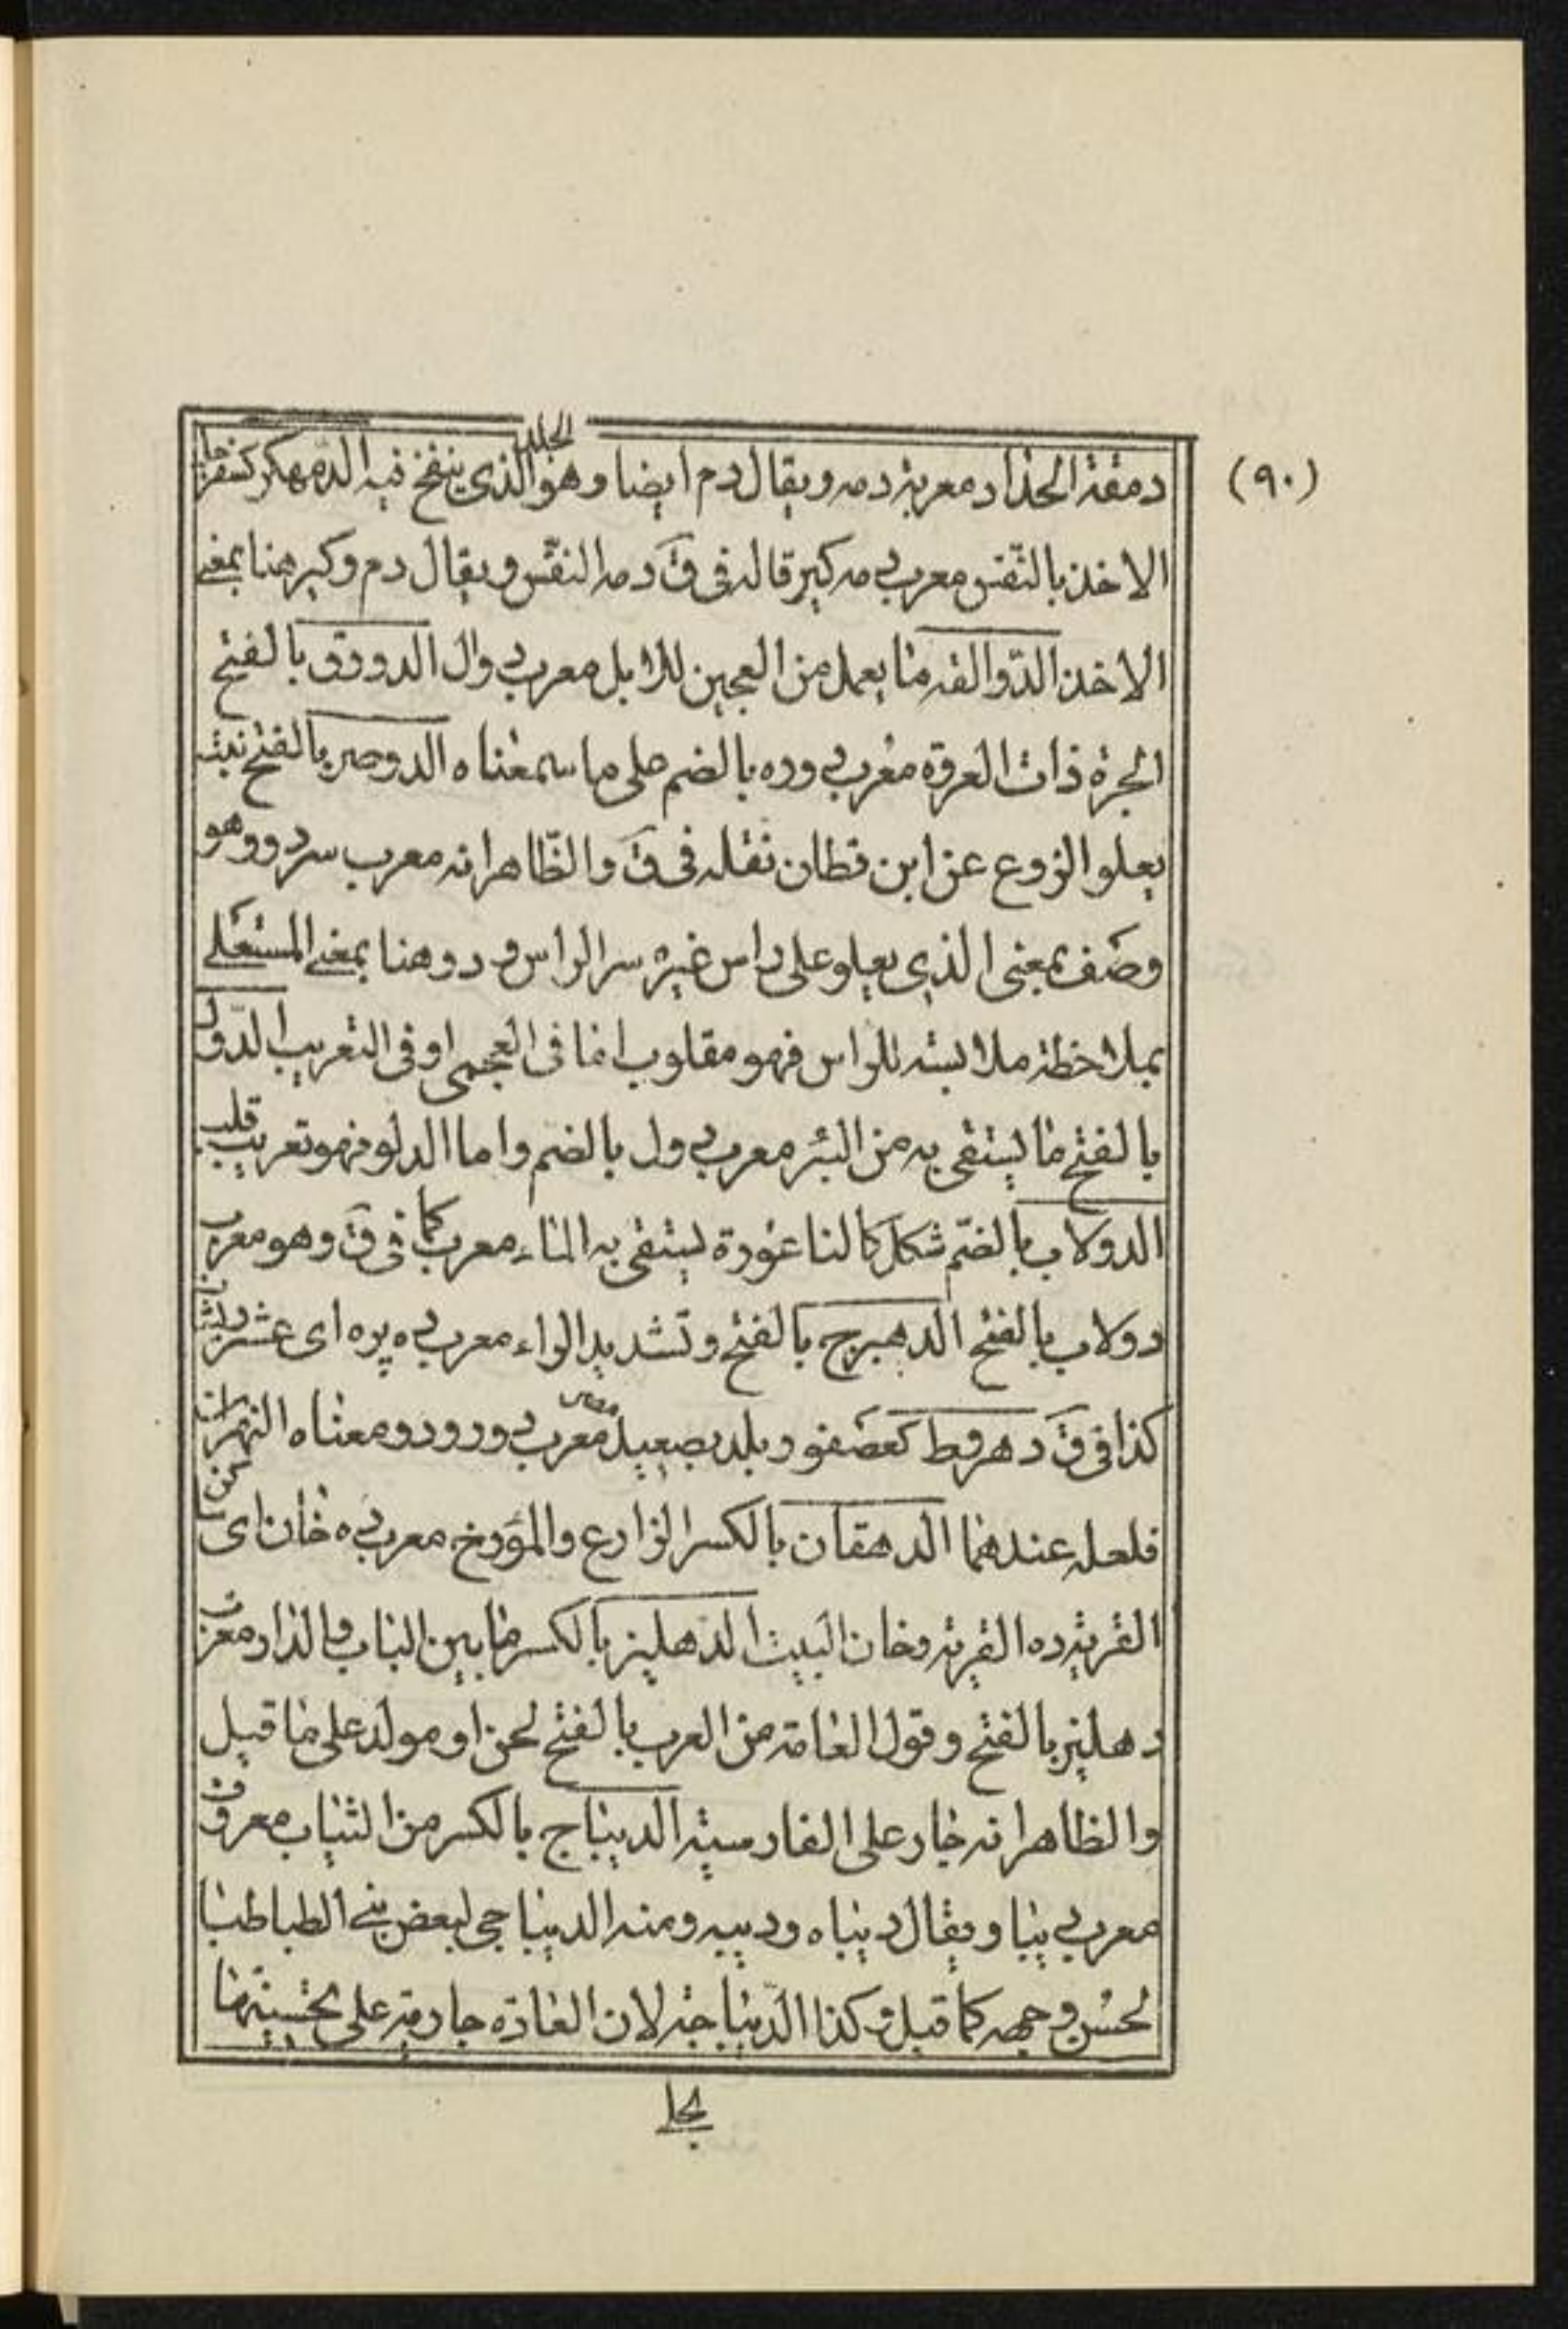 (٩٠)
دمقة الحداد معربة دمه ويقال دم ايضا وهو الجلد الذى ينفخ فيه الدمهكر كسفرجل
الاخذ بالنفس معرب دمه كير قاله فى ق دمه النفس ويقال دم وكير هنا بمعنى
الاخذ الدوالقه ما يعمل من العجين للابل معرب دوال الدورق بالفتح
الجرة ذات العروة معرب دوره بالضم على ما سمعناه الدوصر بالفتح نبت
يعلو الزرع عن ابن قطان نقله فى ق والظاهر انه معرب سردر وهو
وصف بمعنى الذى يعلو على راس غيره سر الراس ودر وهنا بمعنى المستعلى
بملاحظة ملابسته للراس فهو مقلوب اما فى العجمى او فى التعريب الدول
بالفتح ما يستقى به من البئر معرب دول بالضم واما الدلو فهو تعريب قلب
الدولاب بالضم شكل كالناعورة يستقى به الماء معرب كما فى ق وهو معرب
دولاب بالفتح الدهبرج بالفتح وتشديد الراء معرب ده پره اى عشر ريشات
كذا فى ق دهروط كعصفور بلد بصعيد مصر معرب دو رود ومعناه النهران
فلعله عندهما الدهقان بالكسر الزارع والمؤرخ معرب ده خان اى
القرية ده القرية وخان البيت الدهليز بالكسر ما بين الباب والدار معرب
دهليز بالفتح وقول العامة من العرب بالفتح لحن او مولد على ما قيل
والظاهر انه جار على الفارسية الديباج بالكسر من الثياب معروف
معرب ديبا ويقال ديباه وديبه ومنه الديباجى لبعض بنى الطباطبا
لحسن وجهه كما قيل وكذا الديباجة لان العادة جارية على تحسينها
بجا